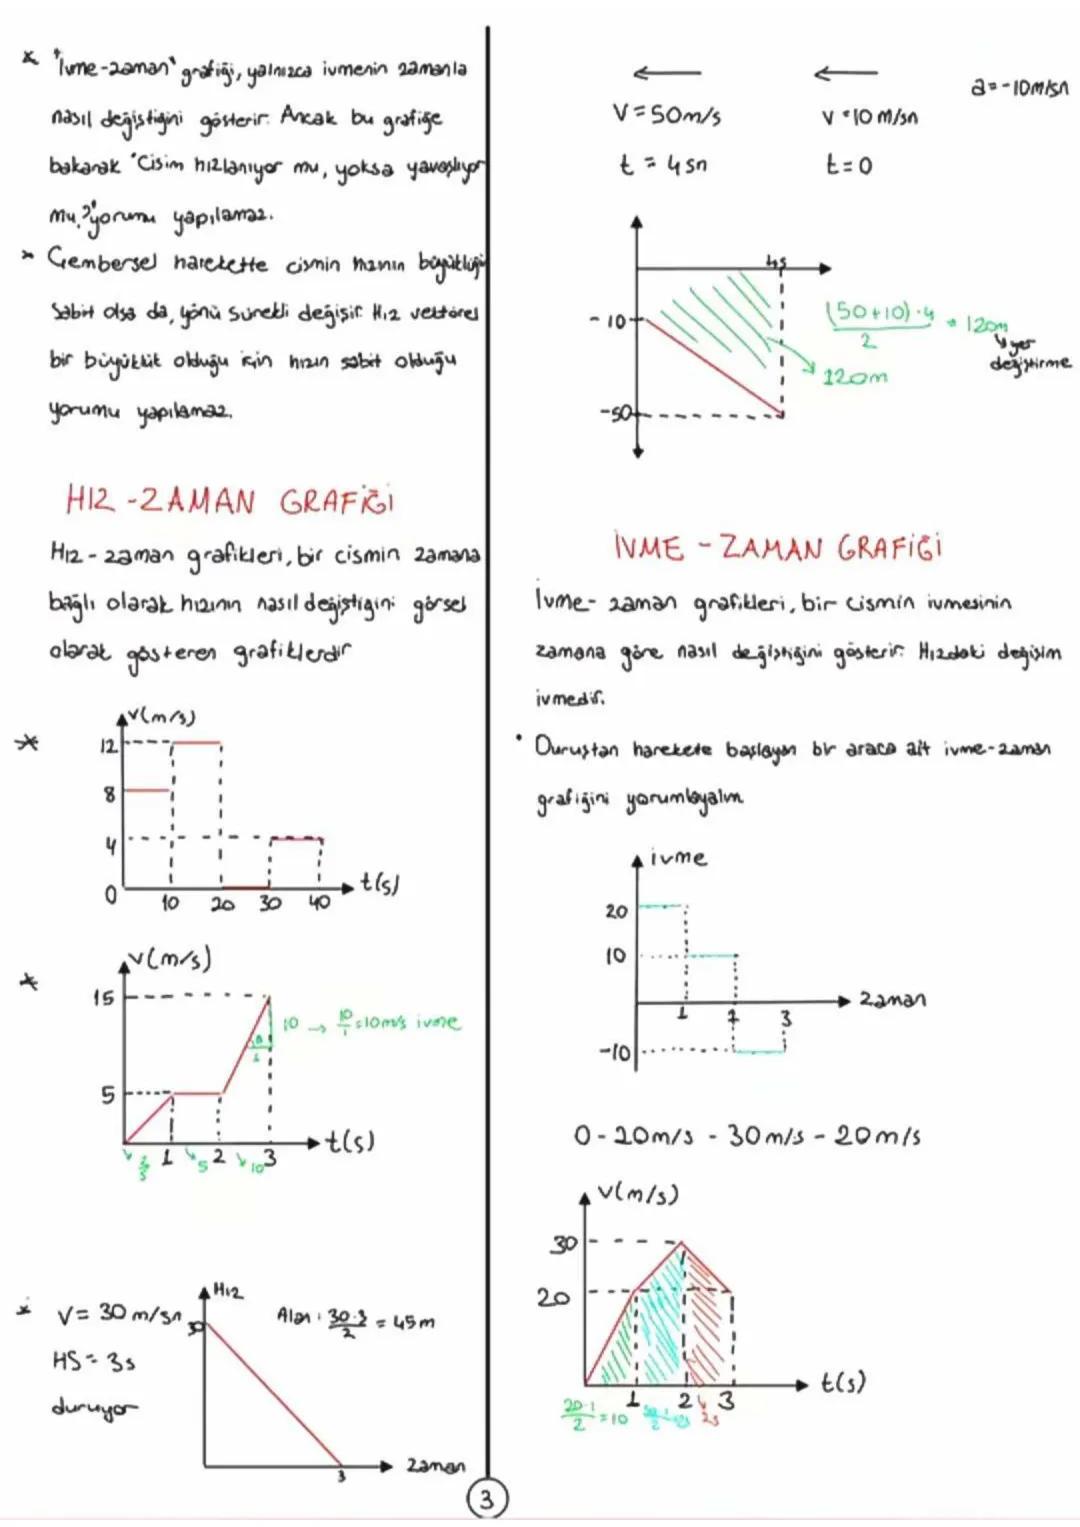 * "İvme-zaman" grafiği, yalnızca ivmenin zamanla
nasıl değiştiğini gösterir. Ancak bu grafiğe
bakarak "Cisim hızlanıyor mu, yoksa yavaşlıyor
mu?" yorumu yapılamaz.
* Çembersel harekette cismin hızının büyüklüğü
sabit olsa da, yönü sürekli değişir. Hız vektörel
bir büyüklük olduğu için hızın sabit olduğu
yorumu yapılamaz.
HIZ-ZAMAN GRAFİĞİ
Hız-zaman grafikleri, bir cismin zamana
bağlı olarak hızının nasıl değiştiğini görsel
olarak gösteren grafiklerdir
*
V(m/s)
12
8
4
0
10 20 30 40
t(s)
*
V(m/s)
15
5
10 → 10/1 = 10m/s ivme
1 2 3
t(s)
5
10
* V = 30 m/sn
HS = 3s
duruyor
Hız
30
Alan: 30.3/2 = 45m
3
zaman
3
V = 50m/s
t = 4sn
V = 10 m/sn
t = 0
a = -10m/sn
4s
-10
-50
(50+10).4/2 = 120m
yer
değiştirme
120m
İVME - ZAMAN GRAFİĞİ
İvme- zaman grafikleri, bir cismin ivmesinin
zamana göre nasıl değiştiğini gösterir. Hızdaki değişim
ivmedir.
• Duruştan harekete başlayan bir araca ait ivme-zaman
grafiğini yorumlayalım
ivme
20
10
-10
1 2 3
zaman
0 - 20m/s - 30m/s - 20m/s
V(m/s)
30
20
1 2 3
t(s)
20.1/2 = 10